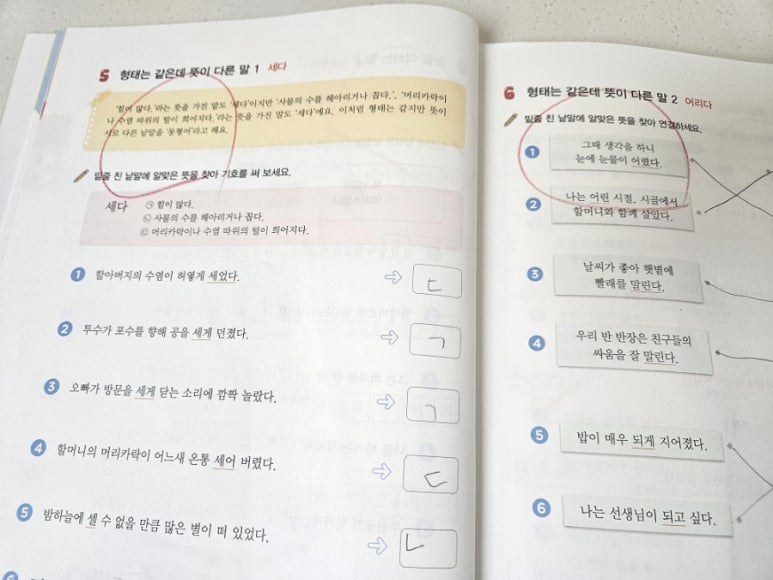 5 형태는 같은데 뜻이 다른 말 1 세다
'힘이 많다.'라는 뜻을 가진 말도 '세다'이지만 '사물의 수를 헤아리거나 꼽다.', '머리카락이
나 수염 따위의 털이 희어지다.'라는 뜻을 가진 말도 '세다'예요. 이처럼 형태는 같지만 뜻이
서로 다른 낱말을 '동형어'라고 해요.
밑줄 친 낱말에 알맞은 뜻을 찾아 기호를 써 보세요.
세다 ㉠ 힘이 많다.
㉡ 사물의 수를 헤아리거나 꼽다.
㉢ 머리카락이나 수염 따위의 털이 희어지다.
1 할아버지의 수염이 허옇게 세었다. ㄷ
2 투수가 포수를 향해 공을 세게 던졌다. ㄱ
3 오빠가 방문을 세게 닫는 소리에 깜짝 놀랐다. ㄱ
4 할머니의 머리카락이 어느새 온통 세어 버렸다. ㄷ
5 밤하늘에 셀 수 없을 만큼 많은 별이 떠 있었다. ㄴ
6 형태는 같은데 뜻이 다른 말 2 어리다
밑줄 친 낱말에 알맞은 뜻을 찾아 연결하세요.
1 그때 생각을 하니
눈에 눈물이 어렸다.
2 나는 어린 시절, 시골에서
할머니와 함께 살았다.
3 날씨가 좋아 햇볕에
빨래를 말린다.
4 우리 반 반장은 친구들의
싸움을 잘 말린다.
5 밥이 매우 되게 지어졌다.
6 나는 선생님이 되고 싶다.